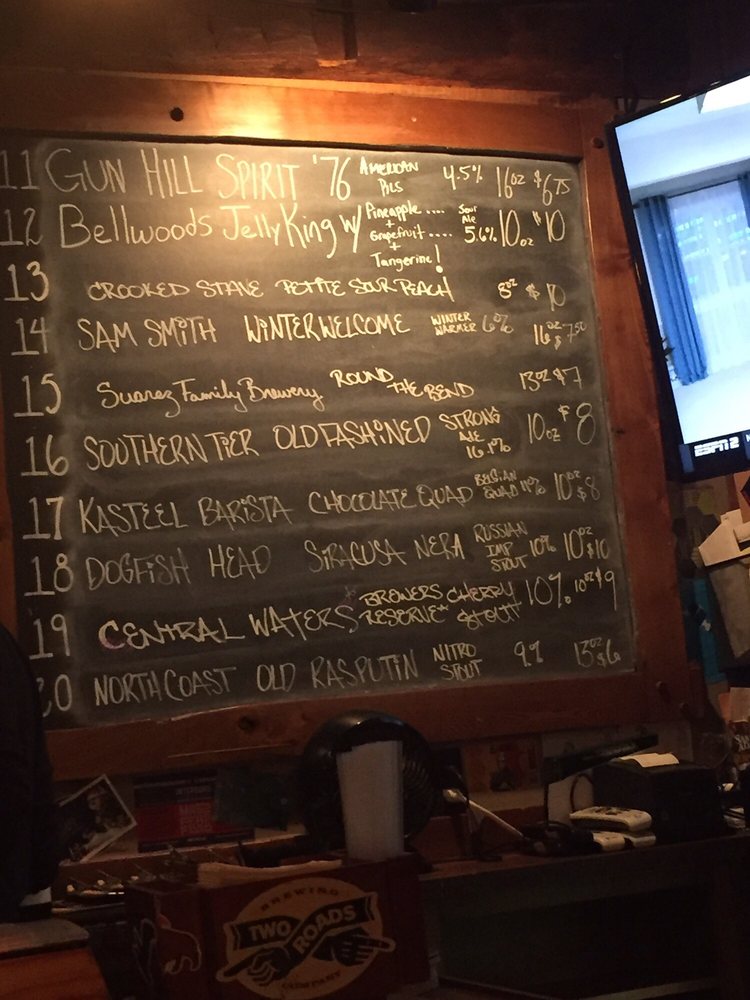 11 GUN HILL SPIRIT '76 AMERICAN PILS 4.5% 16oz $6.75
12 Bellwoods Jelly King w/ Pineapple .... + Grapefruit .... + Tangerine! Sour Ale 5.6% 10oz $10
13 CROOKED STAVE PETITE SOUR PEACH 8oz $10
14 SAM SMITH WINTER WELCOME WINTER WARMER 6% 16oz $7.50
15 Suarez Family Brewery ROUND THE BEND 13oz $7
16 SOUTHERN TIER OLD FASHINED STRONG ALE 16.1% 10oz $8
17 KASTEEL BARISTA CHOCOLATE QUAD BELGIAN QUAD 11% 10oz $8
18 DOGFISH HEAD SIRACUSA NERA RUSSIAN IMP STOUT 10% 10oz $10
19 CENTRAL WATERS *BREWERS RESERVE* CHERRY STOUT 10% 10oz $9
20 NORTH COAST OLD RASPUTIN NITRO STOUT 9% 13oz $6
ESPN2
BREWING
TWO ROADS
COMPANY